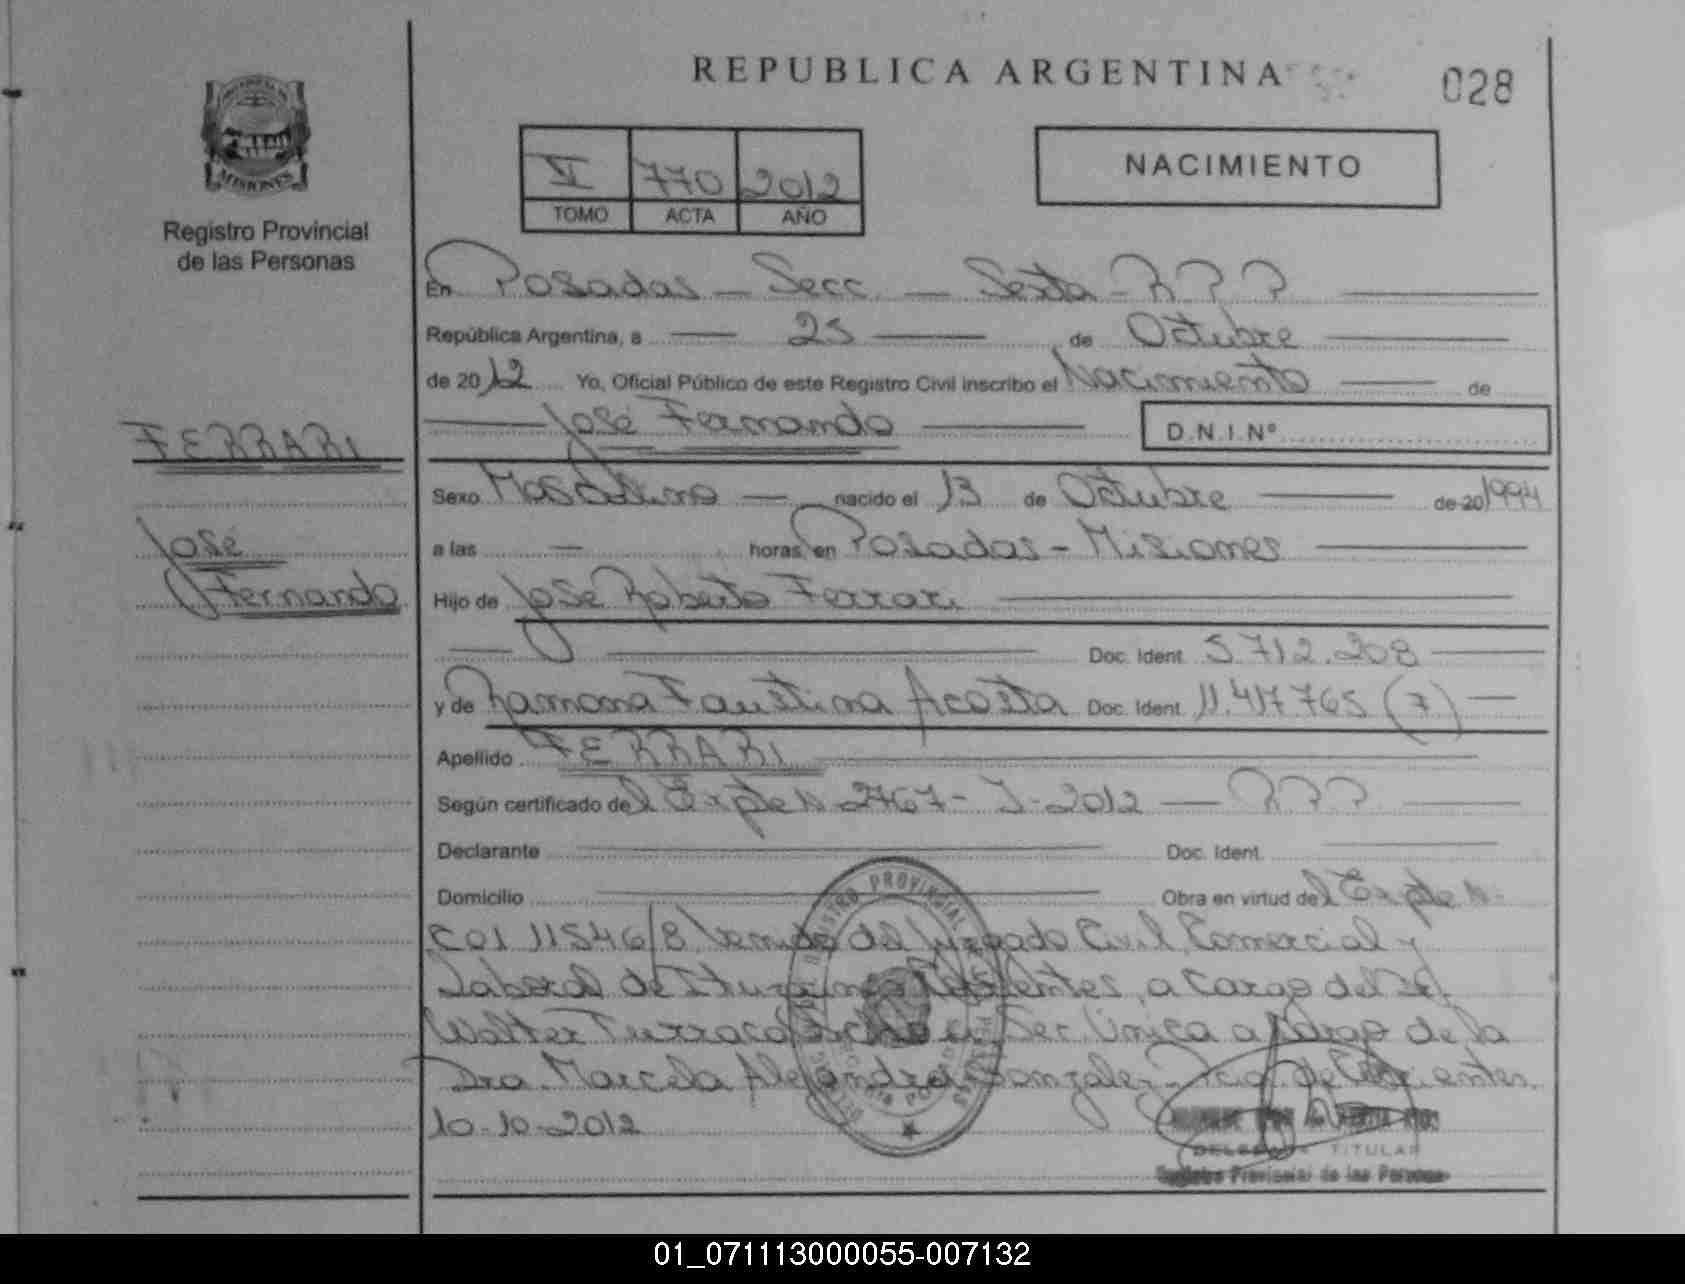 REPUBLICA ARGENTINA
028
MISIONES
Registro Provincial
de las Personas
VI 770 2012
TOMO ACTA AÑO
NACIMIENTO
En Posadas - Secc. - Sexta - R.P.P
República Argentina, a 25 de Octubre
de 2012 Yo, Oficial Público de este Registro Civil inscribo el Nacimiento de
José Fernando
D.N.I.Nº
FERRARI
José
Fernando
Sexo Masculino nacido el 13 de Octubre de 20 1994
a las - horas, en Posadas - Misiones
Hijo de José Roberto Ferrari
Doc. Ident. 5.712.208
y de Ramona Faustina Acosta Doc. Ident. 11.417.765 (7)
Apellido FERRARI
Según certificado del Expte N 2767-J-2012 - R.P.P
Declarante Doc. Ident.
Domicilio Obra en virtud del Expte N-
C01 11546/8 venido del Juzgado Civil, Comercial y
Laboral de Ituzaingo Corrientes, a Cargo del Dr.
Walter Sec. Unica a Cargo de la
Dra. Marcela Alejandra Gonzalez - Pcia. de Corrientes.
10-10-2012
REGISTRO PROVINCIAL
TITULAR
Registro Provincial de las Personas
01_071113000055-007132